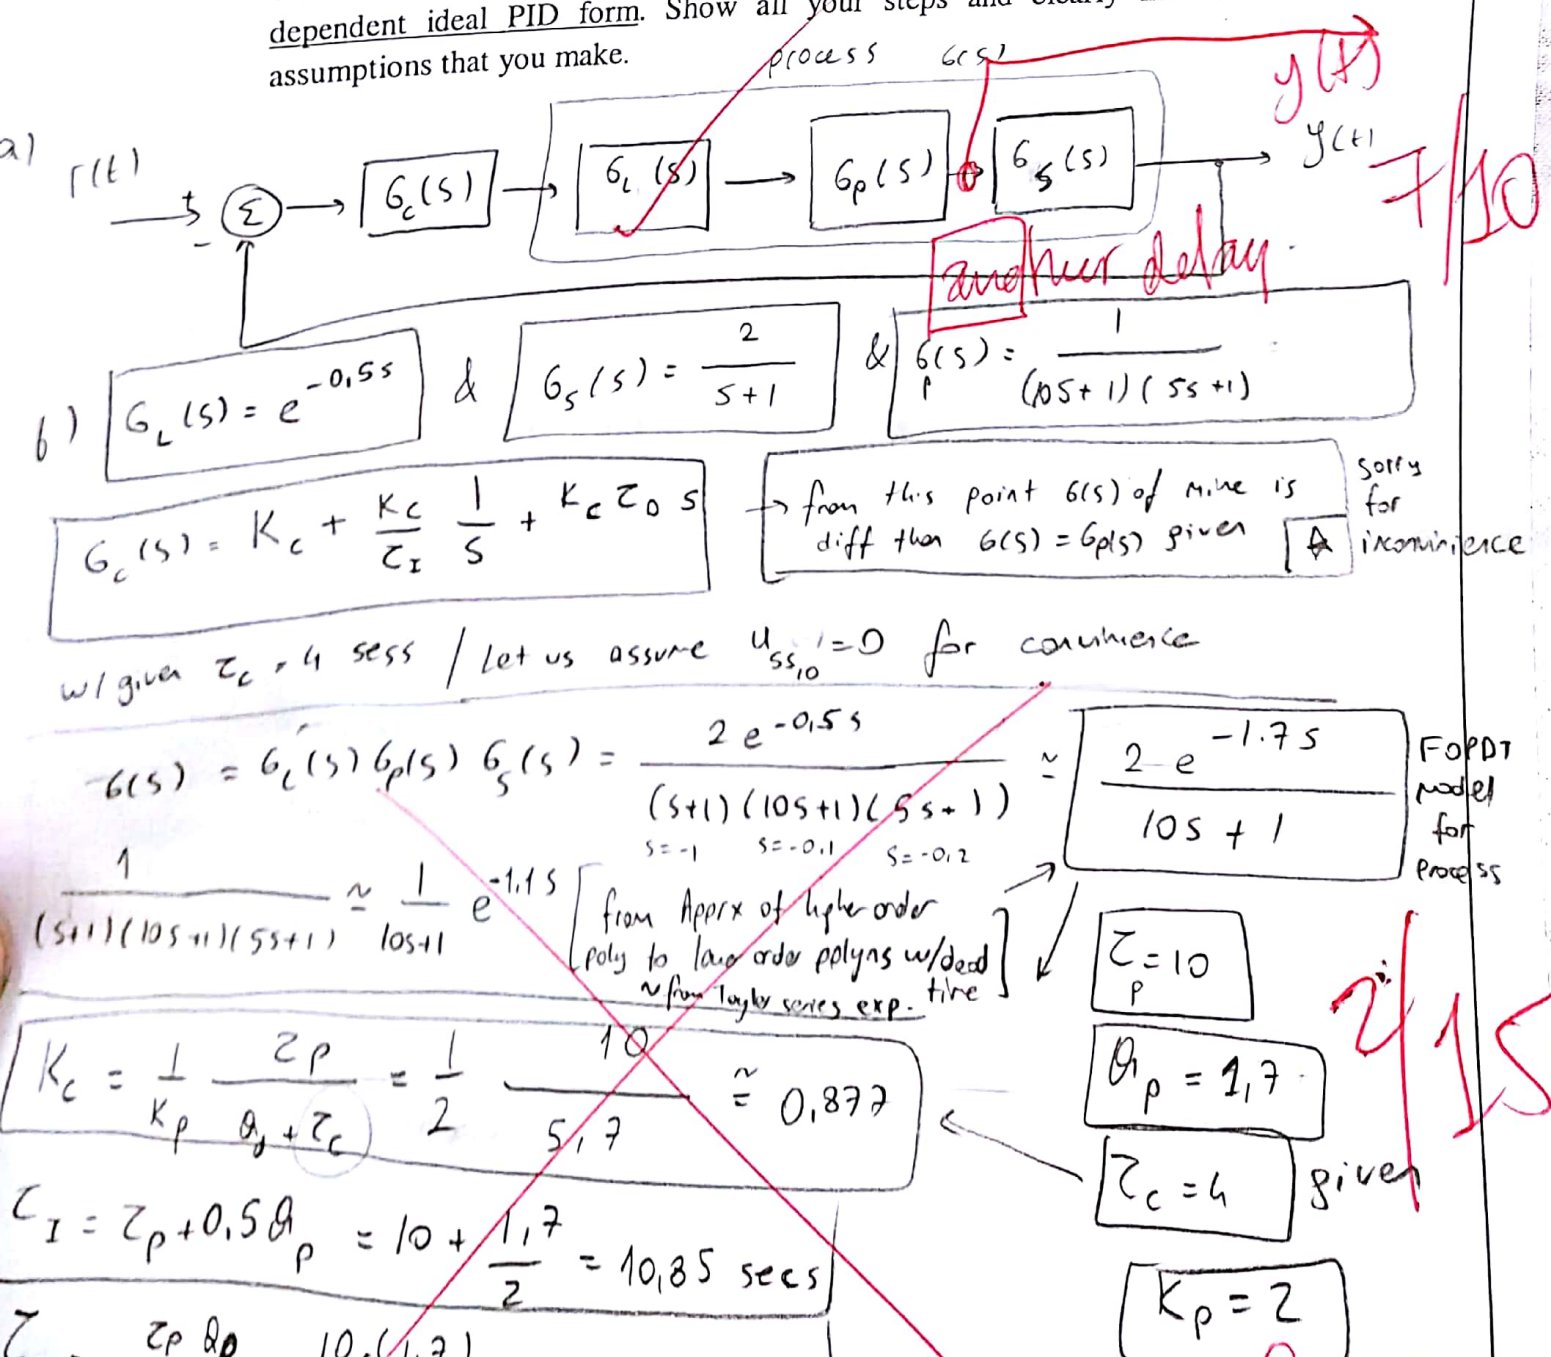 dependent ideal PID form. Show all your steps and clearly
assumptions that you make.
process G(s)
y(t)
a)
r(t)
+
-
Σ
G_c(s)
G_L(s)
G_p(s)
G_s(s)
y(t)
7/10
another delay.
b) G_L(s) = e^{-0,5s} & G_s(s) = 2/(s+1) & G_p(s) = 1/((10s+1)(5s+1))
G_c(s) = K_c + K_c/τ_I 1/s + K_c τ_D s
→ from this point G(s) of mine is
diff than G(s) = Gp(s) given
sorry
for
inconvinience
w/ given τ_c = 4 secs / Let us assume u_{ss,10} = 0 for convinience
G(s) = G_L(s) G_p(s) G_s(s) = 2e^{-0,5s}/((s+1)(10s+1)(5s+1)) ≃ 2e^{-1.7s}/(10s+1)
s=-1 s=-0.1 s=-0,2
FOPDT
model
for
process
1/((s+1)(10s+1)(5s+1)) ≃ 1/(10s+1) e^{-1.1s}
from Apprx of higher order
poly to low order polyns w/dead
time
~ from taylor series exp.
τ_p = 10
2/15
θ_p = 1,7
τ_c = 4 given
K_p = 2
K_c = 1/K_p τ_p/(θ_p + τ_c) = 1/2 10/5,7 ≅ 0,877
τ_I = τ_p + 0,5θ_p = 10 + 1,7/2 = 10,85 secs
τ_p θ_p 10.(1,7)